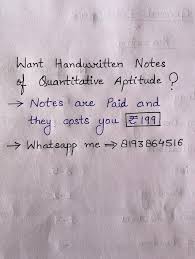 Want Handwritten Notes
of Quantitative Aptitude ?
→ Notes are Paid and
they costs you ₹199
→ Whatsapp me → 8193864516